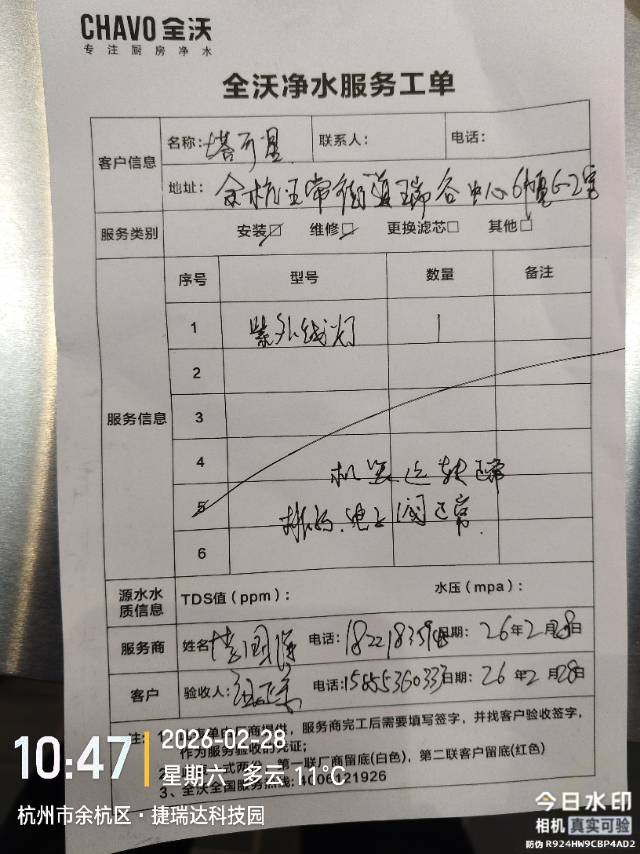 CHAVO 全沃
专注厨房净水
全沃净水服务工单
客户信息
名称：塔可星
联系人：
电话：
地址：余杭五常街道瑞谷中心6幢6-2室
服务类别
安装□ 维修□ 更换滤芯□ 其他□
服务信息
序号 型号 数量 备注
1 紫外线灯 1
2
3
4
机器运转正常
5
电磁阀正常
6
源水水质信息
TDS值（ppm）：
水压（mpa）：
服务商
姓名
电话：
日期：26年2月28日
客户
验收人：
电话：15855360333
日期：26年2月28日
注：
厂商提供，服务商完工后需要填写签字，并找客户验收签字，
作为服务验收的凭证；
第一联厂商留底(白色)，第二联客户留底(红色)
3、全沃全国服务热线：
10:47
2026-02-28
星期六 多云 11℃
杭州市余杭区·捷瑞达科技园
今日水印
相机 真实可验
防伪 R924HW9CBP4AD2